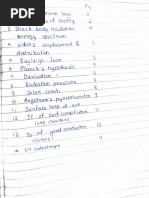 Pg
law 2
of cooling 2
3. Black body radiation 4
energy spectrum
4. Wien's displacement & 5
distribution
5. Rayleigh-Jean 6
6. Planck's hypothesis 6
7. Derivation 7
8. Radiation pressure 8
9. Solar const. 9
10. Angstrom's pyrheliometer 9
11. Surface temp of sun 11
12. TC of bad conductors 11
13. TC of good conductors 11